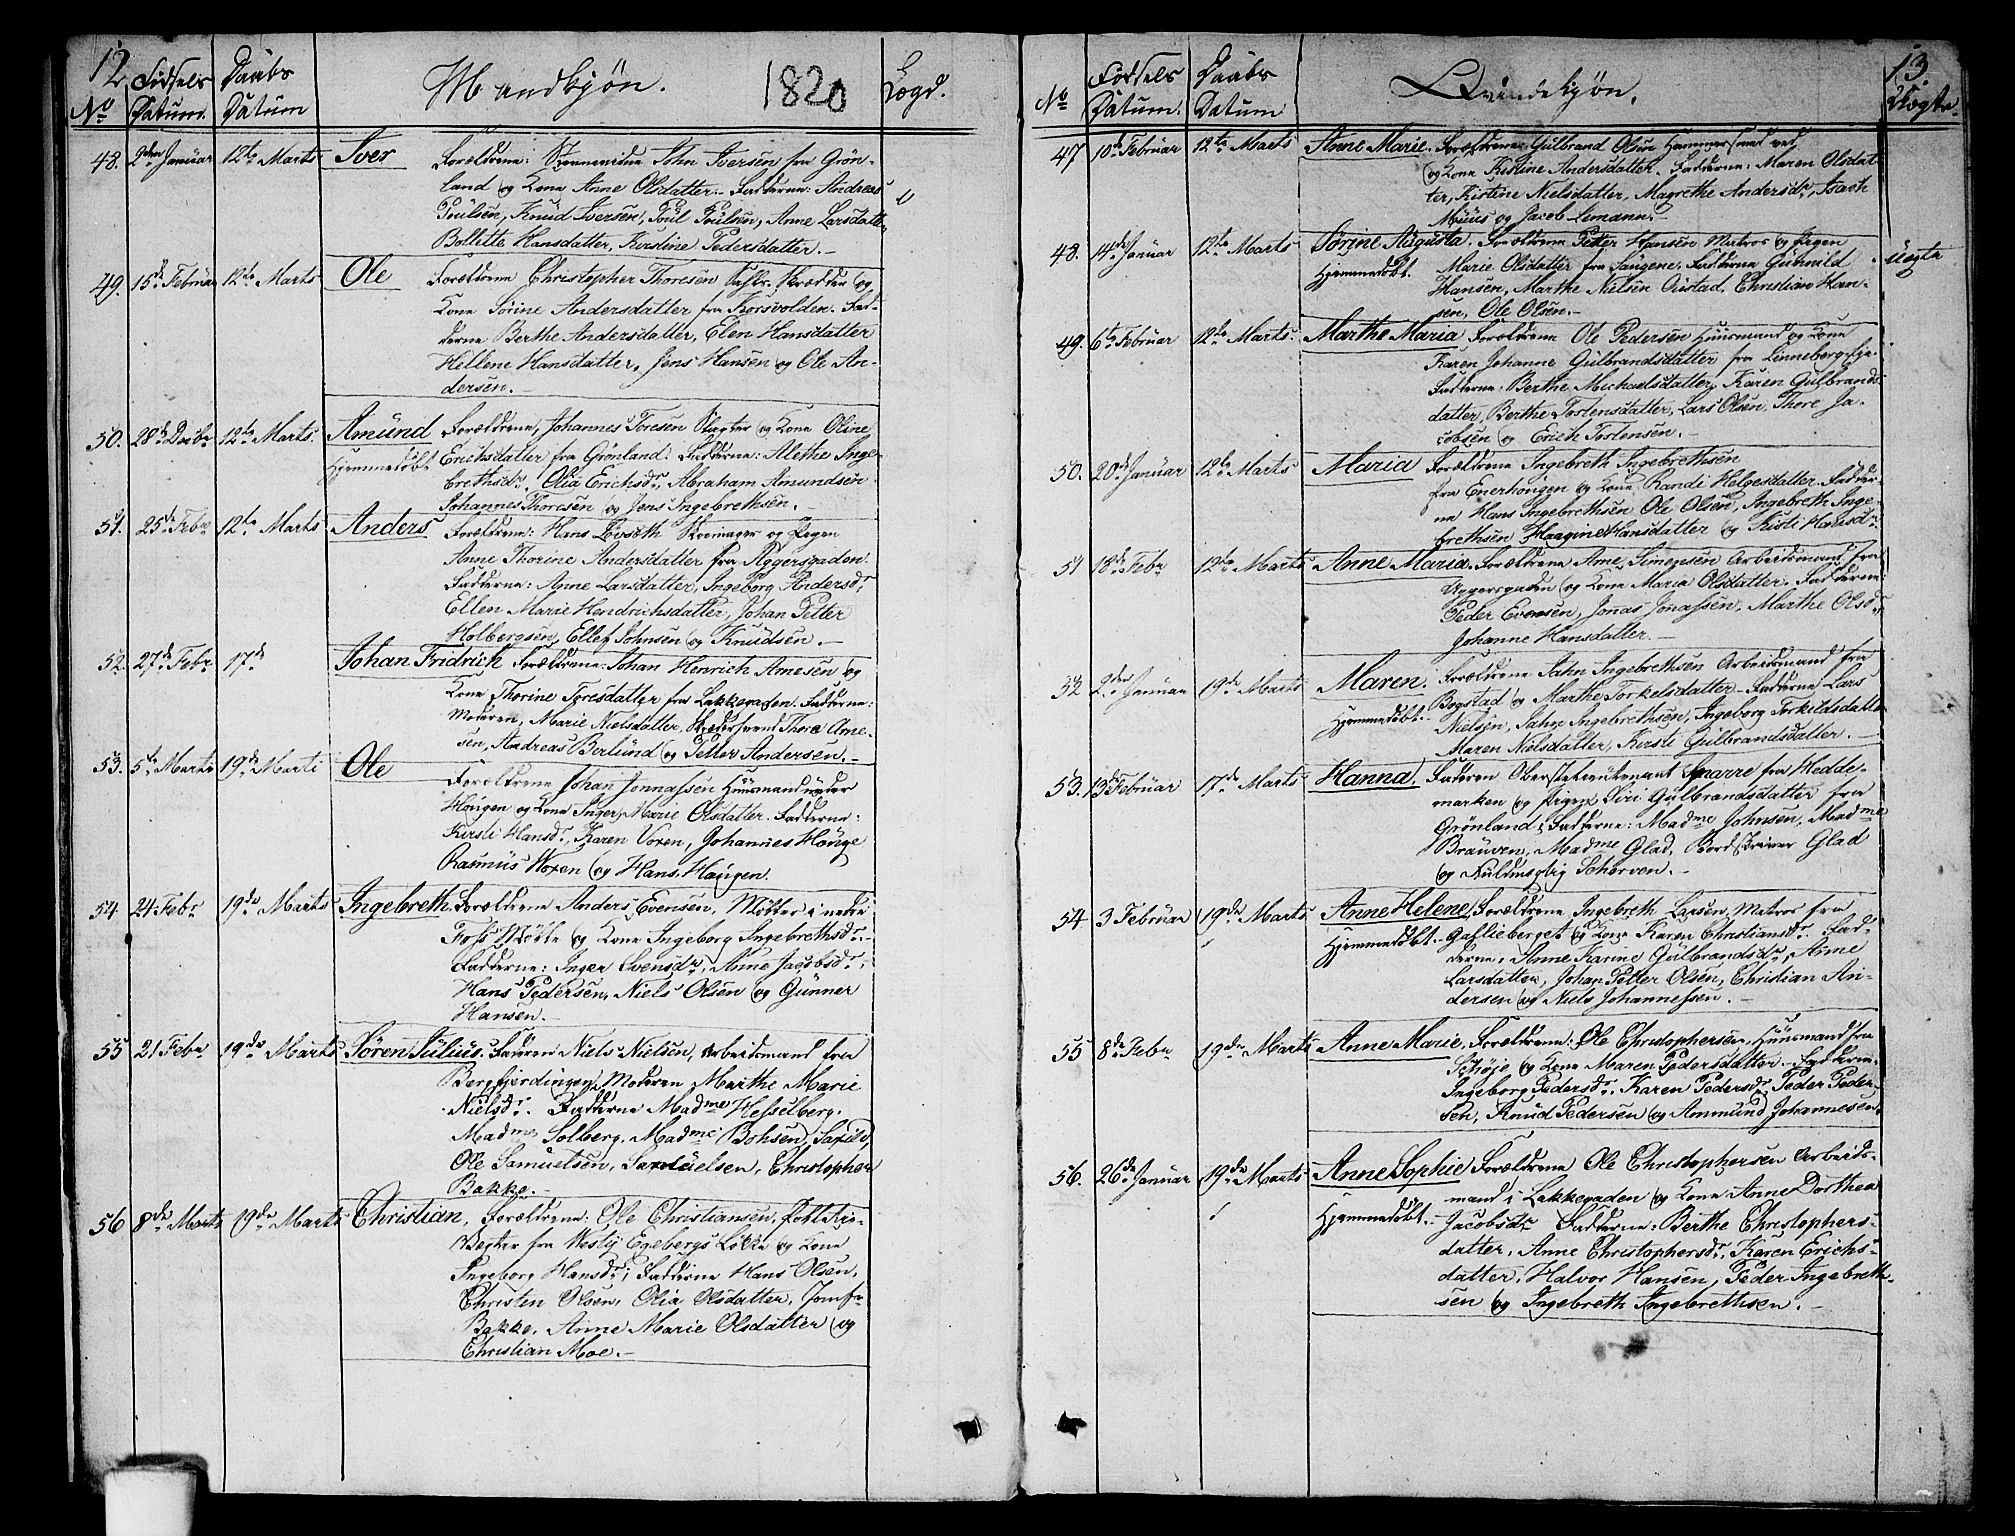 12
Födsels Daabs
No Datum. Datum
Mandkjøn.
1820
Lægd.
48. 2den Januar 12te Marts Iver Forældrene: Steenminder John Iversen fra Grön-
land og Kone Anne Olsdatter. Fadderne: Andreas
Poulsen, Knud Iversen, Poul Poulsen, Anne Larsdatter
Bollette Hansdatter, Kirstine Pedersdatter.-
49. 15de Februar 12te Marts Ole Forældrene Christopher Thoresen Skrædder og
Kone Sörine Andersdatter fra Korsvolden. Fad-
derne Berthe Andersdatter, Elen Hansdatter
Hellene Hansdatter, Jens Hansen og Ole An-
dersen.-
50. 28de Decbr 12te Marts. Amund Forældrene, Johannes Toresen Slagter og Kone Oline
Hjemmedöbt Erichsdatter fra Grönland. Fadderne: Alethe Inge-
brethsdr. Olia Erichsdr. Abraham Amundsen
Johannes Thoresen og Jens Ingebrethsen.-
51. 25de Febr 12te Marts Anders Forældrene: Hans Lövseth Skoemager og Pigen
Anne Thorine Andersdatter fra Aggersgaden.
Fadderne: Anne Larsdatter, Ingeborg Andersdr,
Ellen Marie Hendrichsdatter, Johan Petter
Holbergsen, Ellef Johnsen og Knudsen.-
52. 27de Febr 17de Johan Fridrich Forældrene: Johan Henrich Arnesen og
Kone Thorine Toresdatter fra Lakkegaden. Fadderne:
Moderen, Marie Nielsdatter, Skrædersvend Thore Arne-
sen, Andreas Berlund og Petter Andersen.-
53. 5te Marts 19de Marti Ole
Forældrene Johan Jonnassen Huusmand under
Höugen og Kone Inger Marie Olsdatter. Fadderne:
Kirsti Hansdr, Karen Voxen, Johannes Höuge
Rasmus Woxen og Hans Haugen.
54 24 Febr 19de Marts Ingebreth. Forældrene Anders Evensen, Möller i nedre
Foss Mölle og Kone Ingeborg Ingebrethsdr.-
Fadderne: Inger Svensdr, Anne Jacobsdr,
Hans Pedersen, Niels Olsen og Gunner
Hansen.-
55 21 Febr 19de Marts Sören Julius. Faderen Niels Nielsen, Arbeidsmand fra
Bergfjerdingen, Moderen Marthe Marie
Nielsdr. Fadderne Madme Hesselberg.
Madme Solberg, Madme Bohsen,
Ole Samuelsen, Samuelsen, Christopher
Bakke.-
56 8de Marts 19de Marts Christian, Forældrene: Ole Christiansen,
fra Westy Egebergs Løkke og Kone
Ingeborg Hansdr; Fadderne Hans Olsen,
Christen Olsen, Olia Olsdatter, Jomfr
Bakke, Anne Marie Olsdatter og
Christian Moe.-
13.
Födsels Daabs
No Datum. Datum
Qvindekjøn.
Uægte.
47 10de Februar 12te Marts Anne Marie. Forældrene Gulbrand Olsen Hammersland ved
og Kone Kistine Andersdatter. Fadderne: Maren Olsdat-
ter, Kistine Nielsdatter, Magrethe Andersdr, Isach
Muus og Jacob Limann.-
48. 14de Januar 12te Marts Sörine Augusta. Forældrene Petter Hansen Matros og Pigen uægte
Hjemmedöbt. Marie Olsdatter fra Saugene. Fadderne Gunnild
Hansen, Marthe Nielsen Cristad, Christian Han-
sen, Ole Olsen.-
49. 6te Februar 12te Marts. Marthe Maria Forældrene Ole Pedersen Huusmand og Kone
Karen Johanne Gulbrandsdatter fra Linneberg Eje.
Fadderne: Berthe Michaelsdatter, Karen Gulbrands-
datter, Berthe Tostensdatter, Lars Olsen, Thore Ja-
cobsen og Erich Tostensen.-
50. 20de Januar 12te Marts Maria Forældrene Ingebreth Ingebrethsen
fra Enerhougen og Kone Randi Helgesdatter. Fadder-
ne Hans Ingebrethsen Ole Olsen, Ingebreth Inge-
brethsen Haagine Hansdatter og Kisti Hansdr
51 18de Febr 12te Marts Anne Maria. Forældrene Arne Simensen Arbeidsmand fra
Aggersgaden og Kone Maria Olsdatter. Fadderne:
Peder Evensen, Jonas Jonassen, Marthe Olsdr,
Johanne Hansdatter.-
52 2den Januar 19de Marts Maren. Forældrene Jahn Ingebrethsen Arbeidsmand fra
Hjemmedöbt. Bogstad og Marthe Torkelsdatter. Fadderne Lars
Nielsen, Jahn Ingebrethsen, Ingeborg Torkildsdatter
Maren Nielsdatter, Kirsti Gulbrandsdatter.-
53. 13de Februar 17de Marts Hanna. Faderen Oberstlieutenant Sparre fra Hedde-
marken og Pigen Siri Gulbrandsdatter fra
Grönland; Fadderne: Madme Johnsen, Madme
Brauven, Madme Glad, Bordskriver Glad
og Fuldmægtig Schorven.-
54 3 Februar 19de Marts Anne Helene, Forældrene Ingebreth Larsen, Matros fra
Hjemmedöbt. Galgeberget og Kone Karen Christiansdr. Fad-
derne: Anne Karine Gulbrandsdr, Anne
Larsdatter, Johan Petter Olsen, Christian An-
dersen og Niels Johannessen.-
55 8de Febr 19de Marts Anne Marie, Forældrene: Ole Christophersen, Huusmand fra
Schöje og Kone Maren Pedersdatter. Fadderne:
Ingeborg Pedersdr. Karen Pedersdr, Peder Peder-
sen, Knud Pedersen og Ammund Johannesen.
56. 26de Januar 19de Marts Anne Sophie Forældrene Ole Christophersen Arbeids-
mand i Lakkegaden og Kone Anne Dorthea
Hjemmedöbt. Jacobsdr Fadderne: Berthe Christophers-
datter, Anne Christophersdr, Karen Erichs-
datter, Halvor Hansen, Peder Ingebreth-
sen og Ingebreth Ingebrethsen.-